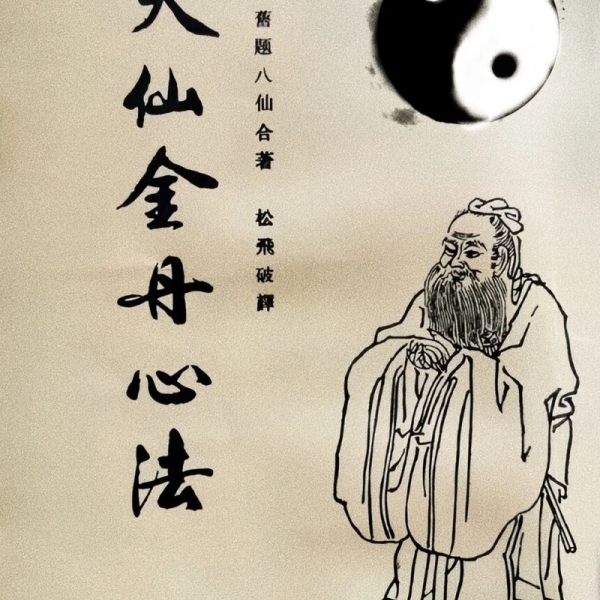 舊題八仙合著 松飛破譯
天仙金丹心法